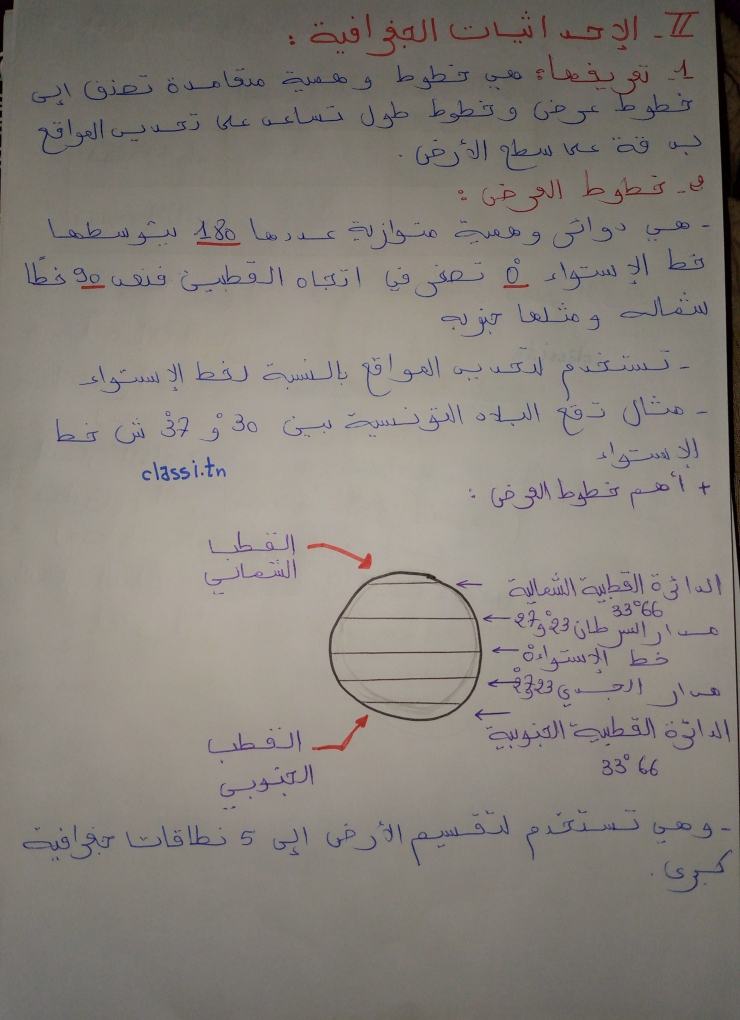 II - الإحداثيات الجغرافية :
1 - تعريفها: هي خطوط وهمية متقامدة تصنف إلى
خطوط عرض وخطوط طول تساعد على تحديد المواقع
بدقة على سطح الأرض .
2 - خطوط العرض :
- هي دوائر وهمية متوازية عددها 180 يتوسطها
خط الإستواء 0° تصغر في اتجاه القطبين فنعد 90 خطًا
شماله ومثلها جنوبه
- تستخدم لتحديد المواقع بالنسبة لخط الإستواء
- مثال تقع البلاد التونسية بين 30° و 37° ش خط
الإستواء
classi.tn
+ أهم خطوط العرض :
القطب
الشمالي
الدائرة القطبية الشمالية
33°66
مدار السرطان 23° و 27
خط الإستواء 0°
مدار الجدي 23°27
الدائرة القطبية الجنوبية
33°66
القطب
الجنوبي
- وهي تستخدم لتقسيم الأرض إلى 5 نطاقات جغرافية
كبرى .